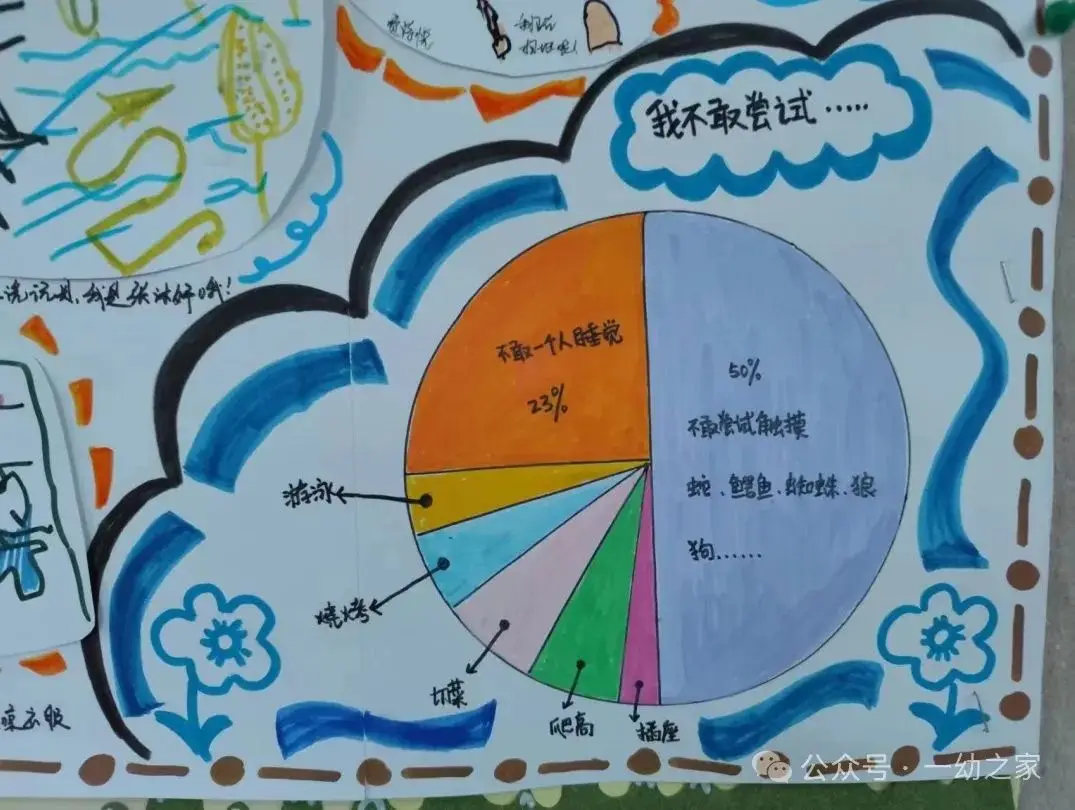 我不敢尝试……
不敢一个人睡觉
23%
50%
不敢尝试触摸
蛇、鳄鱼、蜘蛛、狼
狗……
游泳
烧烤
切菜
爬高
插座
公众号·一幼之家